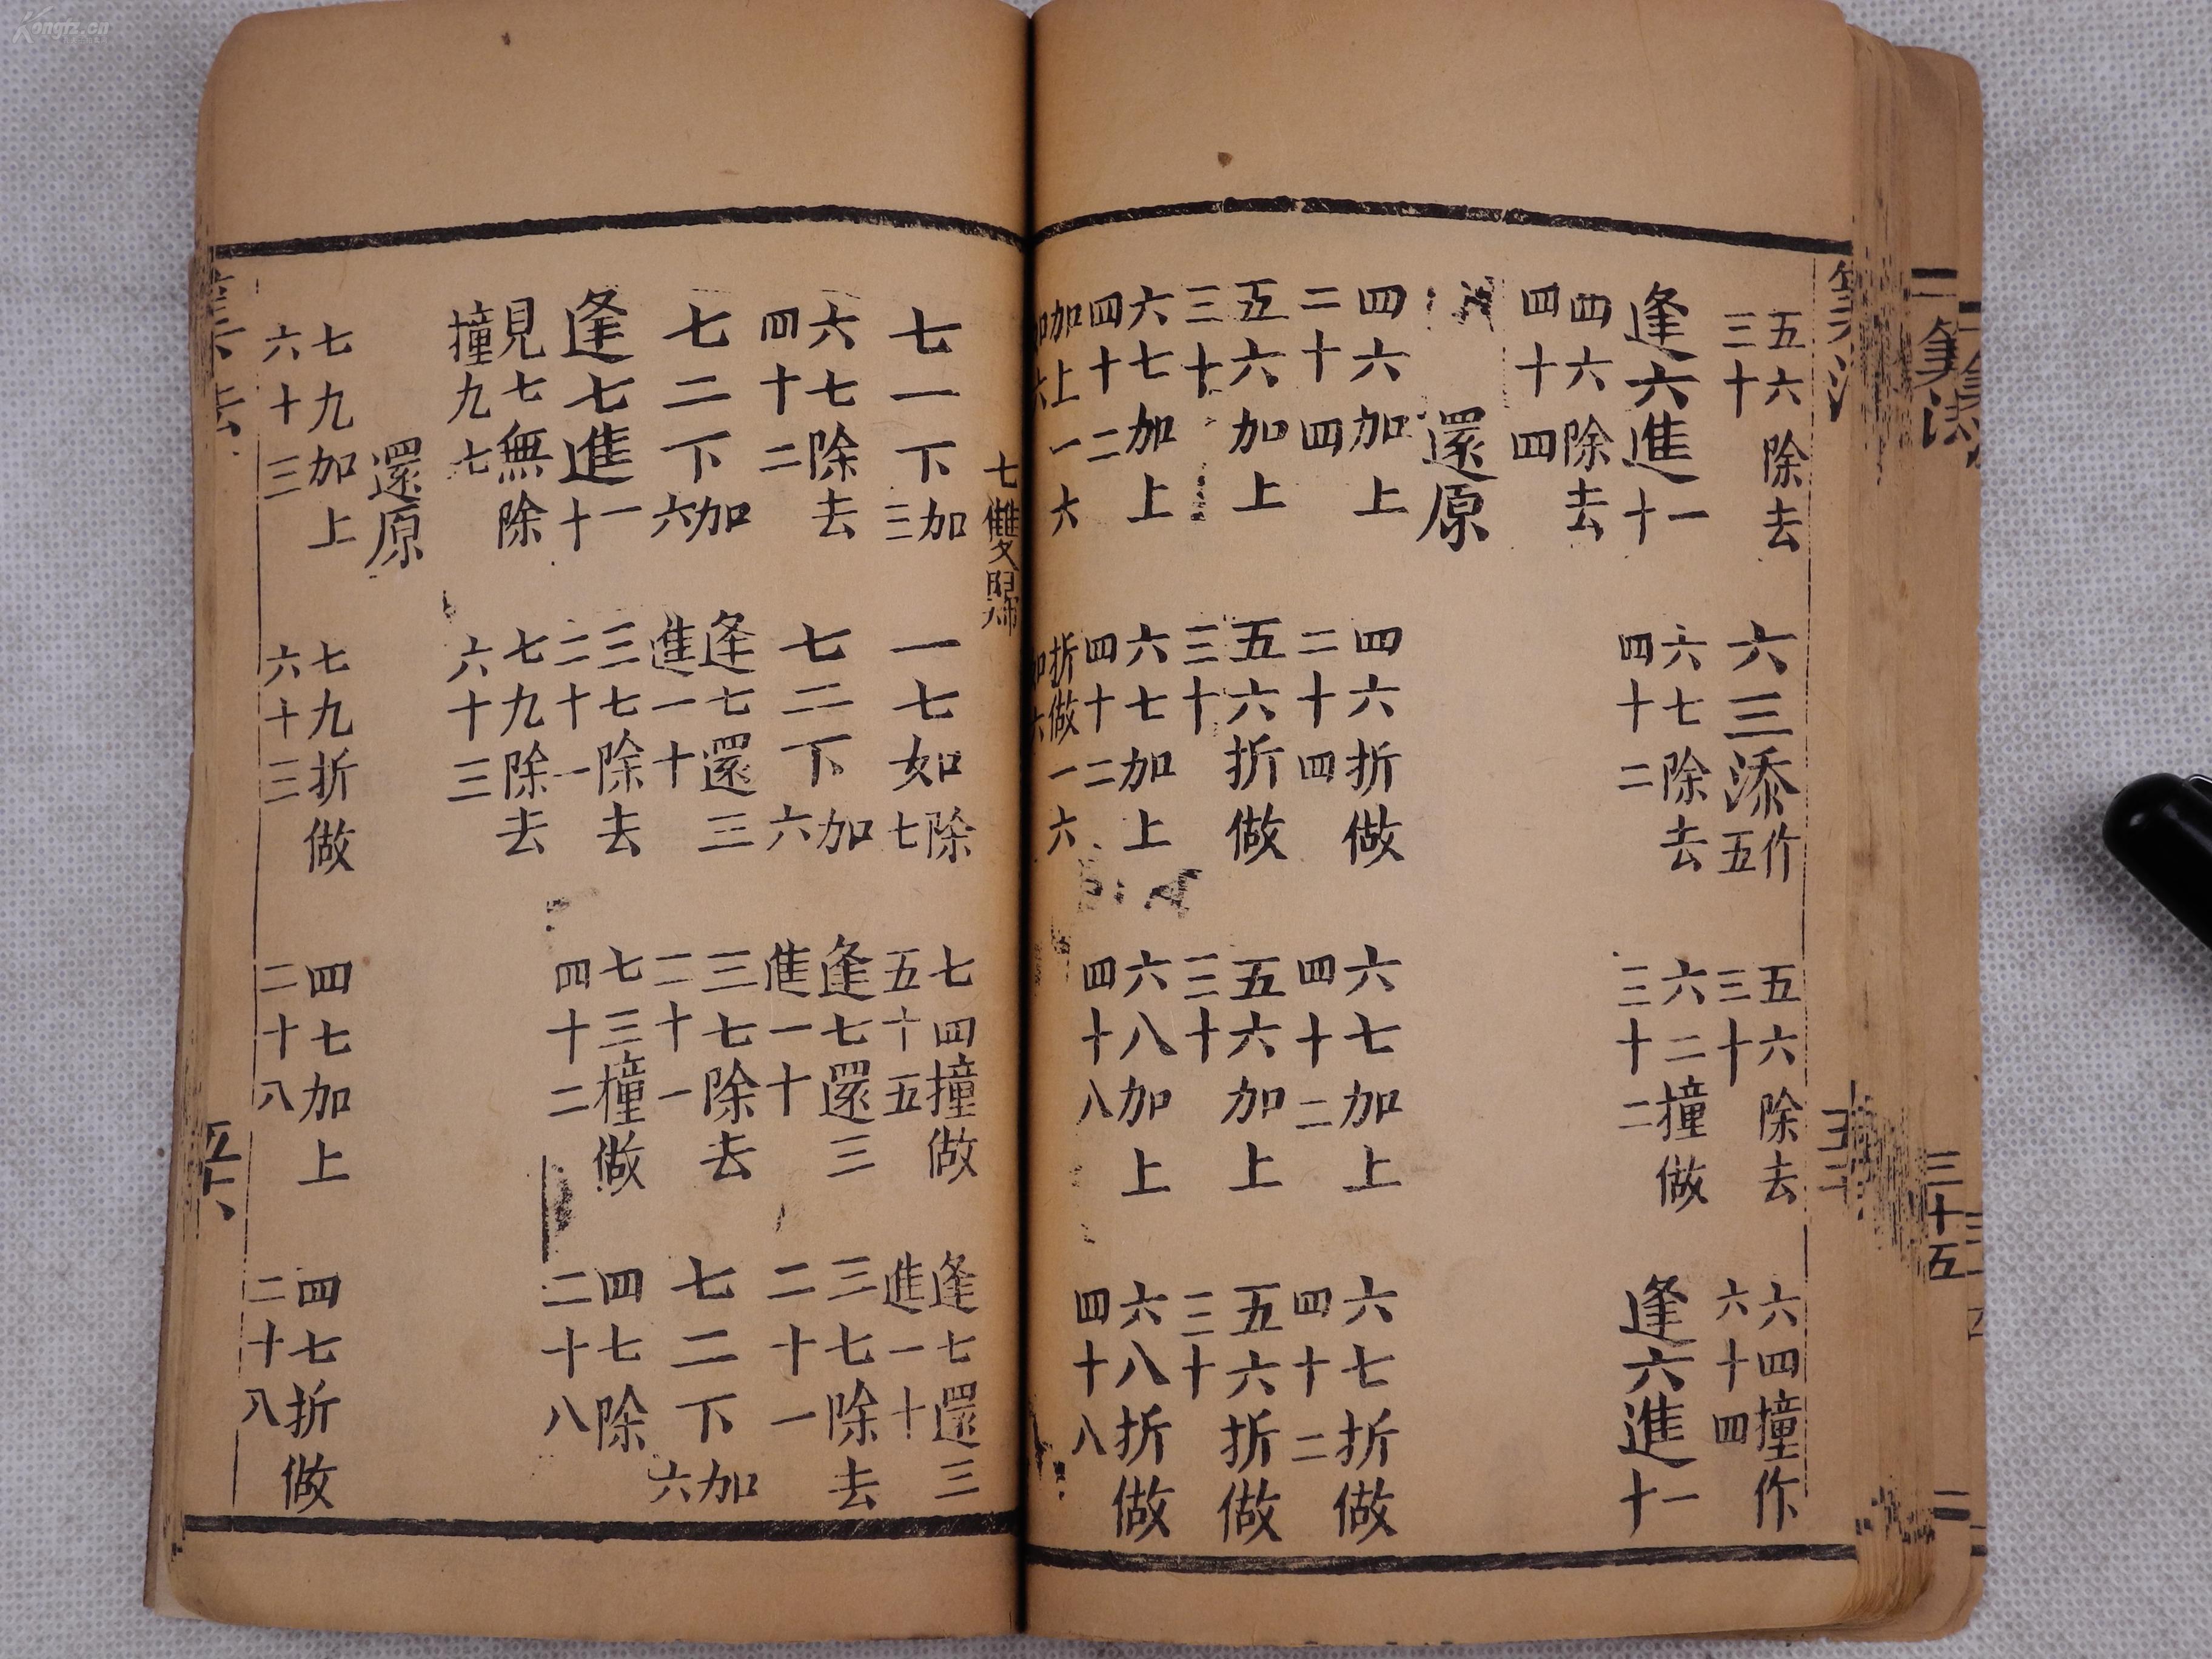 算法
三十五
五六除去三十
六三添作五
五六除去三十
六四撞作六十四
逢六進一十
六七除去四十二
六二撞做三十二
逢六進一十
四六除去四十四
還原
四六加上二十四
四六折做二十四
六七加上四十二
六七折做四十二
五六加上三十
五六折做三十
五六加上三十
五六折做三十
六七加上四十二
六七加上四十二
六八加上四十八
六八折做四十八
加上一六如六
折做一六如六
七雙歸
七一下加三
一七如除七
七四撞做五十五
逢七還三進一十
六七除去四十二
七二下加六
逢七還三進一十
三七除去二十一
七二下加六
逢七還三進一十
三七除去二十一
七二下加六
逢七進一十
三七除去二十一
七三撞做四十二
四七除二十八
見七無除撞九七
七九除去六十三
還原
七九加上六十三
七九折做六十三
四七加上二十八
四七折做二十八
Kongfz.cn